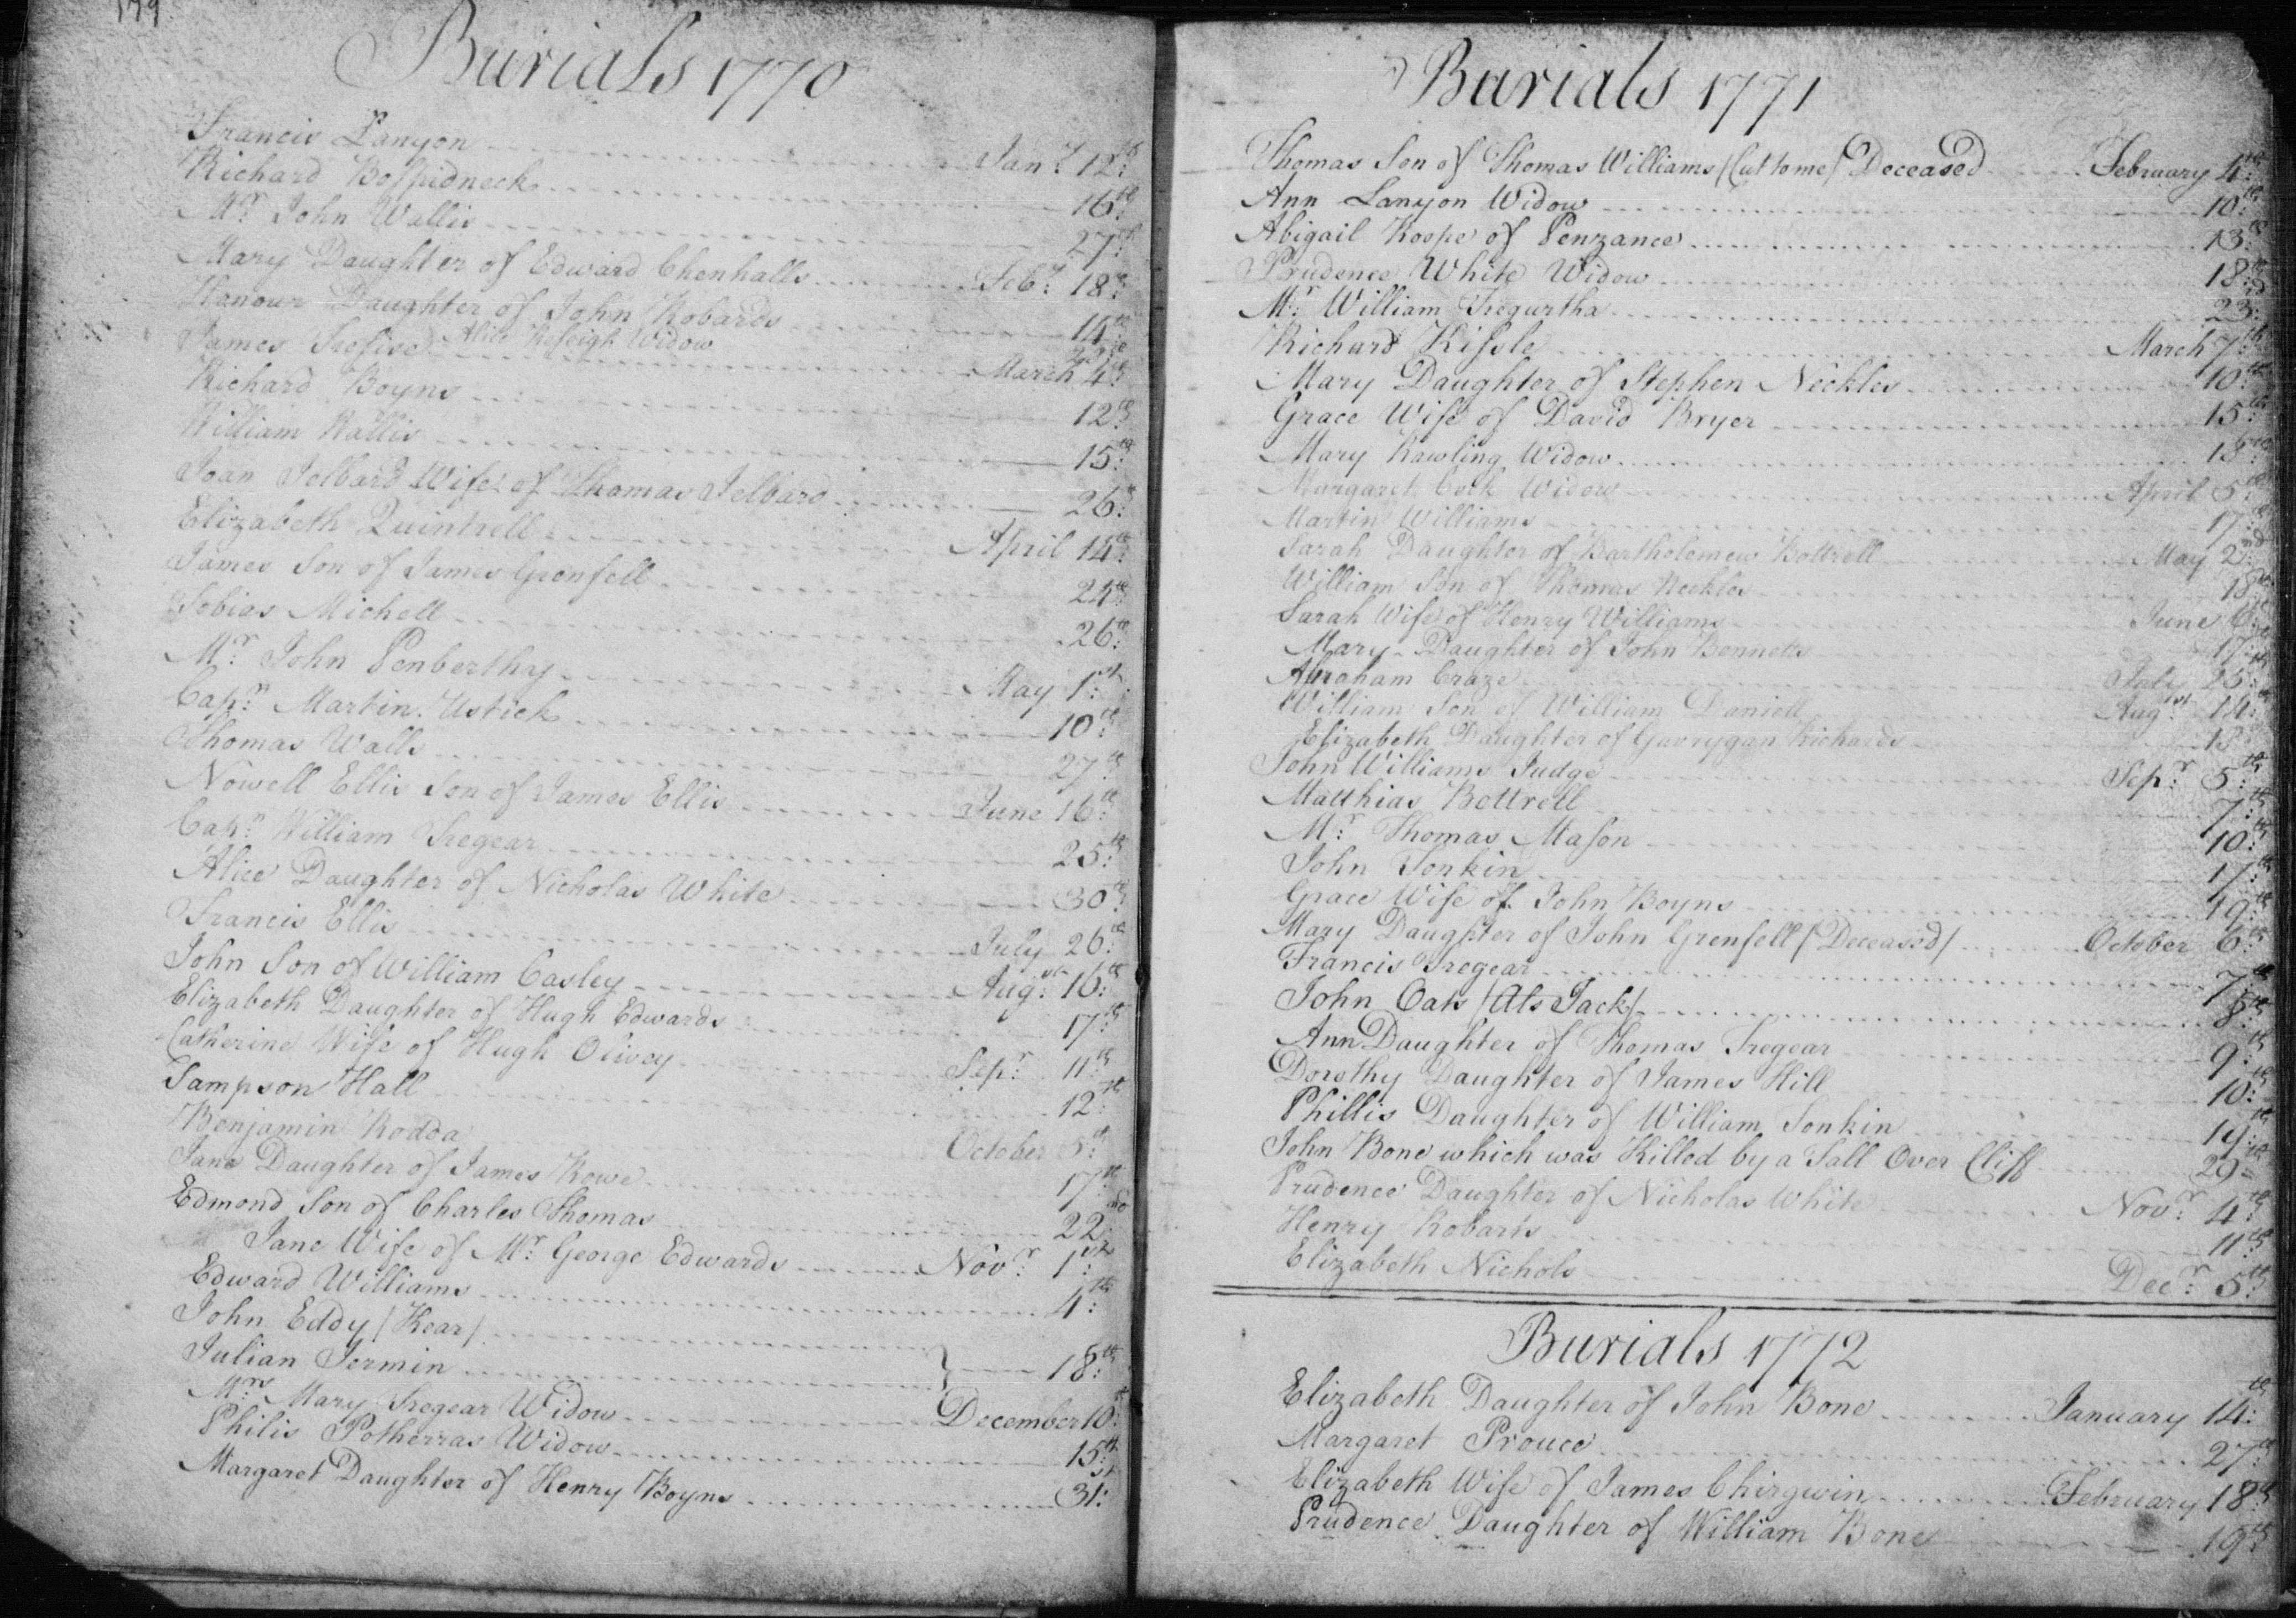 179
Burials 1770
Francis Lanyon Jan.y 12th
Richard Bosspidneck 16th
Mr. John Wallis 27th
Mary Daughter of Edward Chenhalls Feb.y 18th
Honour Daughter of John Robards 14th
Alice Widow 20th
James Trefise March 4th
Richard Boyns 12th
William Wallis 15th
Joan Jelbard Wife of Thomas Jelbard 26th
Elizabeth Quintrell April 14th
James Son of James Grenfell 24th
Tobias Michell 26th
Mr. John Penberthy May 1st
Capn. Martin Ustick 10th
Thomas Walls 27th
Nowell Ellis Son of James Ellis June 16th
Capn. William Tregear 25th
Alice Daughter of Nicholas White 30th
Francis Ellis July 26th
John Son of William Casley Augst. 16th
Elizabeth Daughter of Hugh Edwards 17th
Catherine Wife of Hugh Olivey Sepr. 11th
Sampson Hall 12th
Benjamin Rodda October 5th
Jane Daughter of James Rowe 17th
Edmond Son of Charles Thomas 22nd
Jane Wife of Mr. George Edwards Novr. 1st
Edward Williams 4th
John Eddy /Kear/
Julian Jermin } 18th
Mrs. Mary Tregear Widow December 10th
Philis Potherras Widow 15th
Margaret Daughter of Henry Boyns 31st
Burials 1771
Thomas Son of Thomas Williams /Cut to me/ Deceased February 4th
Ann Lanyon Widow 10th
Abigail Roope of Penzance 13th
Prudence White Widow 18th
Mr. William Tregurtha 23d
Richard Kissle March 7th
Mary Daughter of Stephen Neckles 10th
Grace Wife of David Bryer 15th
Mary Rawling Widow 18th
Margaret Cock Widow April 5th
Martin Williams 17th
Sarah Daughter of Bartholemew Bottrell May 2nd
William Son of Thomas Neckles 18th
Sarah Wife of Henry Williams June 6th
Mary Daughter of John Bennetts 17th
Abraham Craze July 26th
William Son of William Daniell Augst. 14th
Elizabeth Daughter of Garrygan Richards 18
John Williams Judge Sepr. 5th
Matthias Bottrell 7th
Mr. Thomas Mason 10th
John Tonkin 17th
Grace Wife of John Boyns 19th
Mary Daughter of John Grenfell /Deceased/ October 6th
Francis Tregear 7th
John Oats /Als Jack/ 8th
Ann Daughter of Thomas Tregear 9th
Dorothy Daughter of James Hill 10th
Phillis Daughter of William Tonkin 19th
John Bone which was Killed by a Fall Over Cliff 29th
Prudence Daughter of Nicholas White Novr. 4th
Henry Robarts 11th
Elizabeth Nichols Decr. 5th
Burials 1772
Elizabeth Daughter of John Bone January 14th
Margaret Prouce 27th
Elizabeth Wife of James Chirgwin February 18th
Prudence Daughter of William Bone 19th